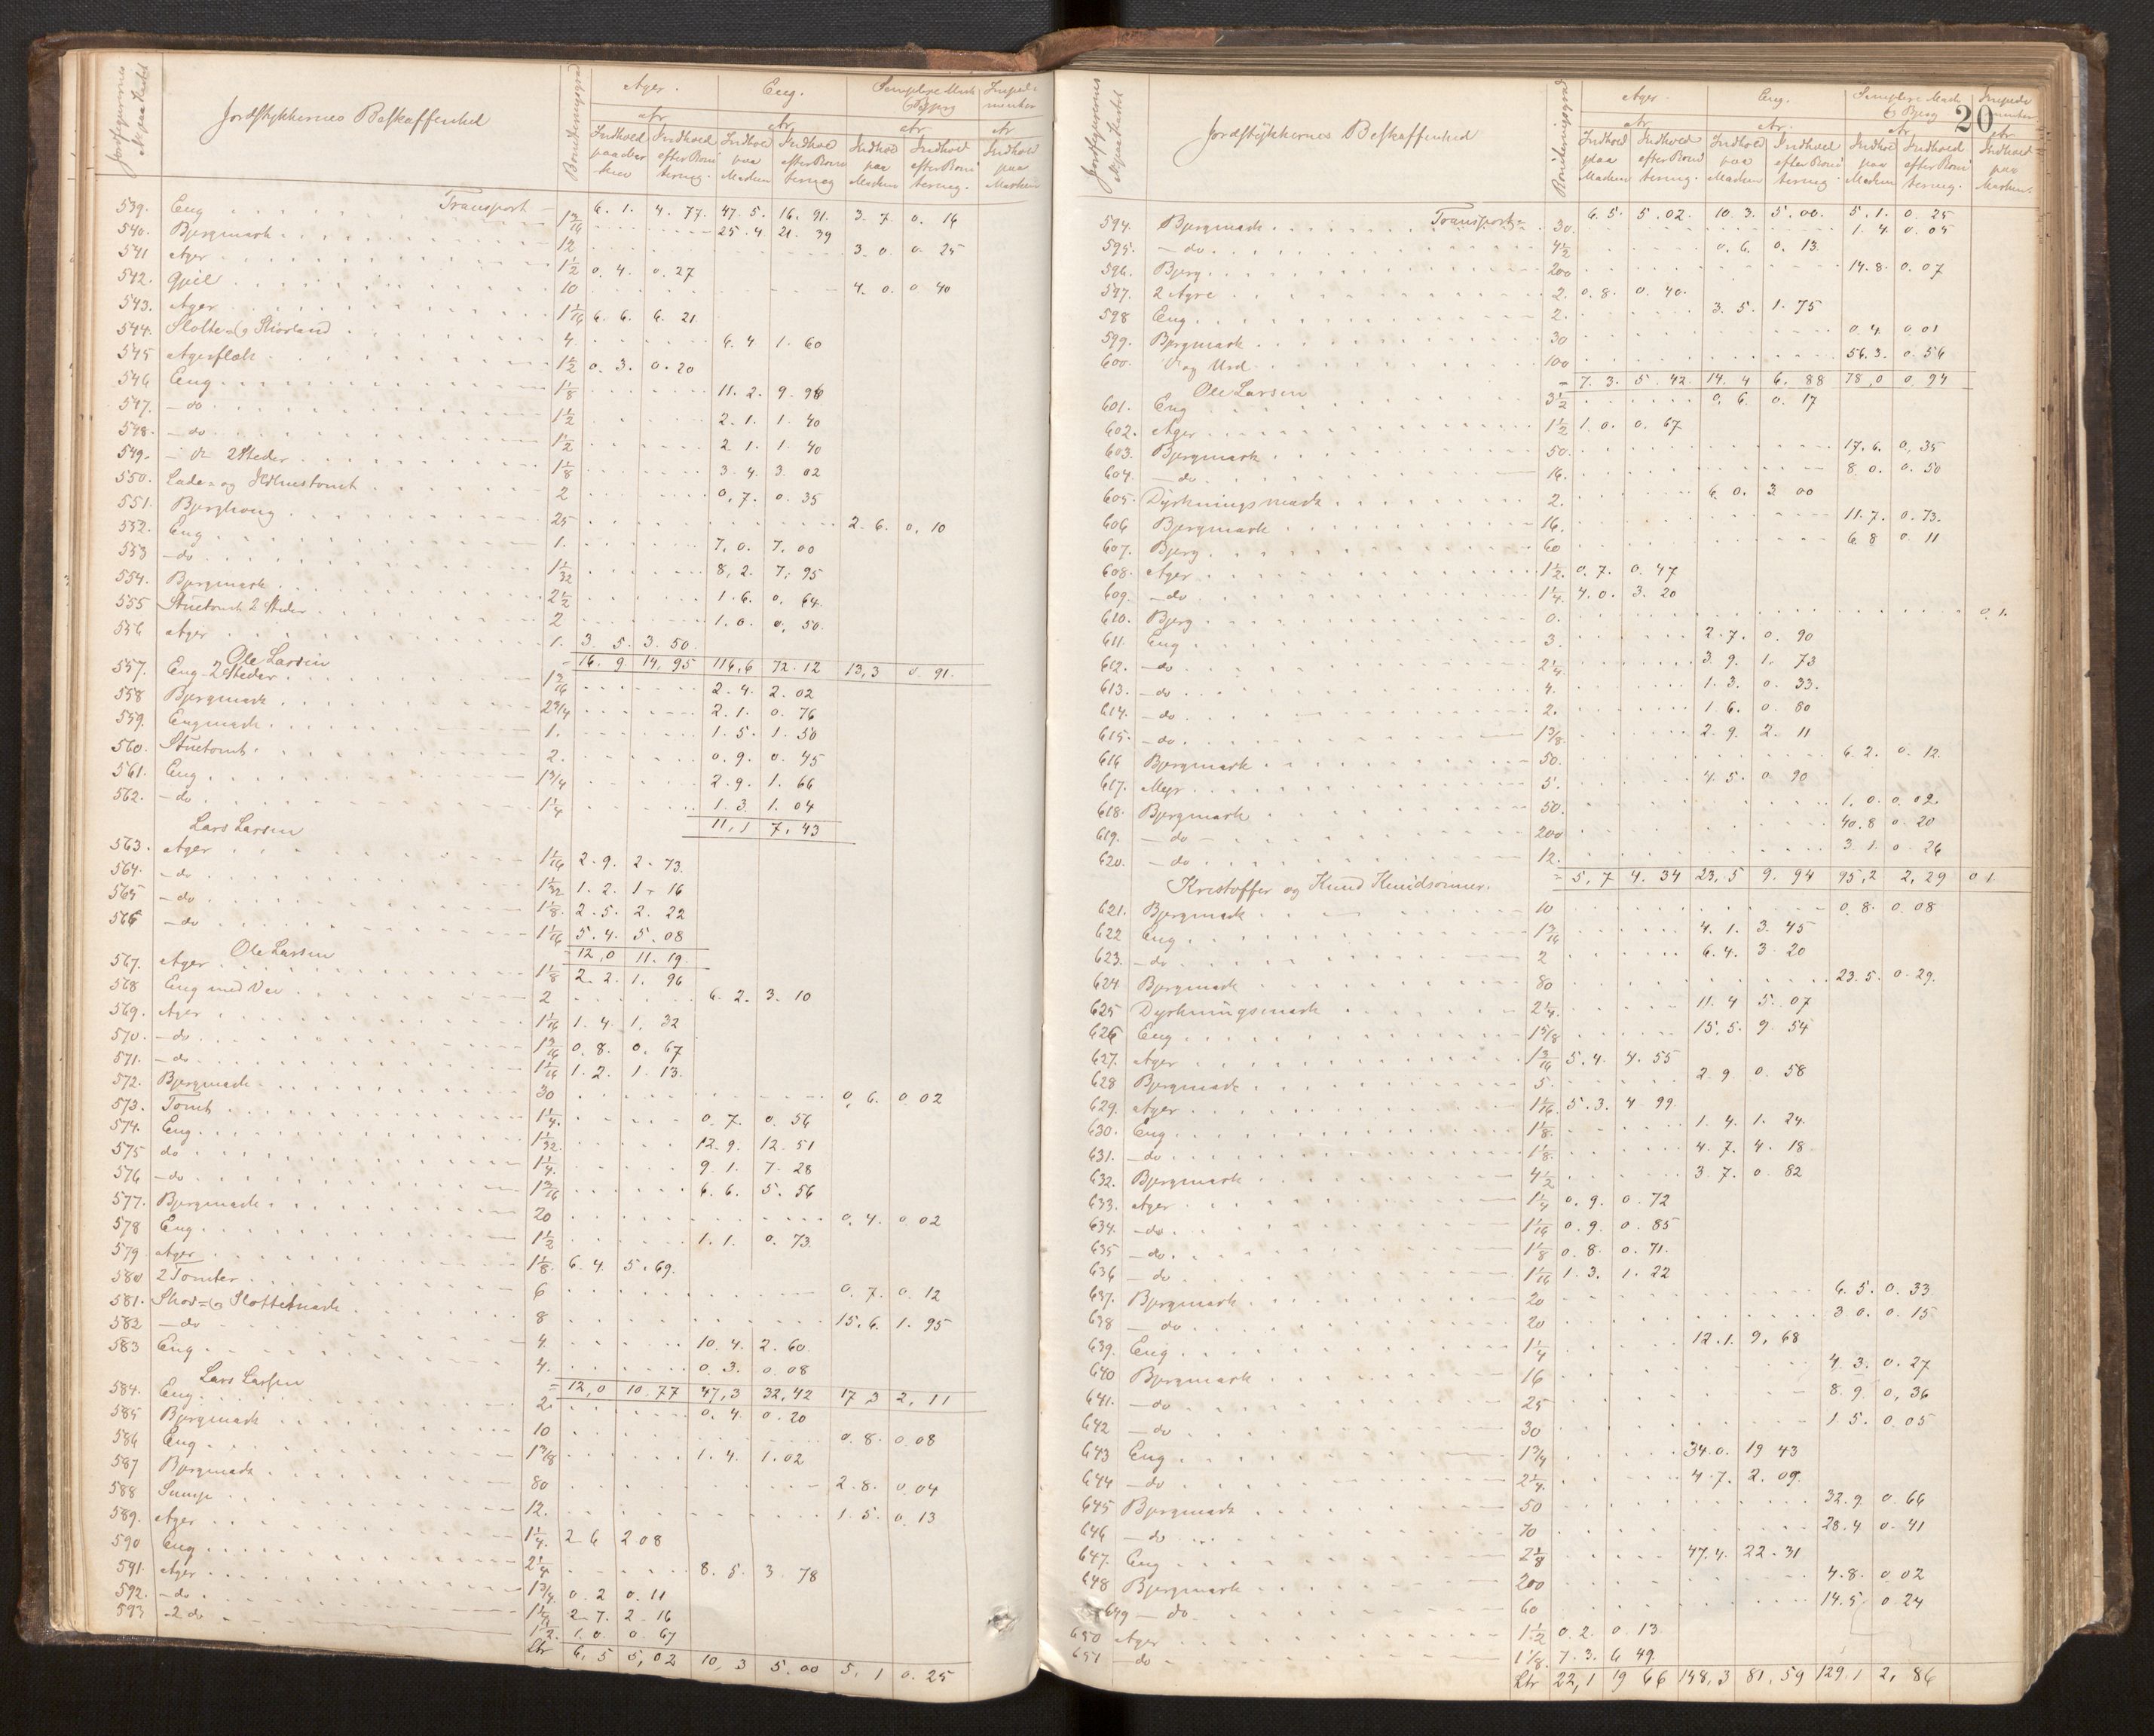 Jordfigurernes № paa Kartet
Jordstykkernes Beskaffenhed
Boniteringsgrad
Ager. Eng. Simplere Mark og Bjerg Impedimenter
Ar Ar Ar Ar
Indhold paa Marken Indhold efter Bonitering. Indhold paa Marken Indhold efter Bonitering Indhold paa Marken Indhold efter Bonitering. Indhold paa Marken
Transport 6.1. 4.77. 47.5. 16.91. 3.7 0.16
539. Eng 1 3/16 25.4 21.39
540. Bjergmark 12 3.0 0.25
541 Ager 1 1/2 0.4. 0.27
542. Gjel 10 4.0. 0.40
543. Ager 1 1/16 6.6. 6.21
544. Slotte og Skovland 4. 6.4 1.60
545 Agerflæk 1 1/2 0.3. 0.20
546 Eng 1 1/8 11.2. 9.96
547. - do 1 1/2 2.1. 1.40
548. - do 1 1/2 2.1 1.40
549. - do 2 Steder 1 1/8 3.4. 3.02
550. Lade- og 2 0.7. 0.35
551. Bjerghoug 25 2.6. 0.10
552. Eng 1. 7.0. 7.00
553 - do 1 1/32 8.2. 7.95
554. Bjergmark 2 1/2 1.6. 0.64
555 Stuetomt 2 Steder 2 1.0. 0.50.
556 Ager 1. 3.5 3.50
= 16.9 14.95 116,6 72.12 13,3 0.91.
Ole Larsen
557. Eng 2 Steder 1 3/16 2.4. 2.02
558 Bjergmark 2 3/4 2.1. 0.76
559. Engmark 1. 1.5. 1.50
560. Stuetomt 2. 0.9. 0.45
561. Eng 1 3/4 2.9. 1.66
562. - do 1 1/4 1.3. 1.04
11,1 7.43
Lars Larsen
563. Ager 1 1/16 2.9. 2.73.
564. - do 1 1/32 1.2. 1.16
565 - do 1 1/8. 2.5. 2.22
566 - do 1 1/16 5.4. 5.08
12,0 11.19.
Ole Larsen
567. Ager 1 1/8 2.2. 1.96
568 Eng med Vei 2 6.2. 3.10
569. Ager 1 1/16 1.4. 1.32
570. - do 1 3/16 0.8. 0.67
571. - do 1 1/16 1.2. 1.13.
572. Bjergmark 30 0.6. 0.02
573. Tomt 1 1/4. 0.7. 0.56
574. Eng 1 1/32. 12.9. 12.51
575 do 1 1/4. 9.1. 7.28
576 - do 1 3/16 6.6. 5.56
577. Bjergmark 20 0.4. 0.02
578 Eng 1 1/2 1.1. 0.73
579 Ager 1 1/8. 6.4. 5.69.
580 2 Tomter 6 0.7. 0.12
581. Skov- og Slottemark 8 15.6. 1.95
582 - do 4. 10.4. 2.60.
583 Eng 4. 0.3. 0.08
= 12,0 10.77 47,3 32,42 17 3 2,11
Lars Larsen
584. Eng 2. 0.4. 0.20
585 Bjergmark 10 0.8. 0.08
586 Eng 1 3/8 1.4. 1.02
587 Bjergmark 80 2.8. 0.04
588 Sump 12. 1.5. 0.13
589. Ager 1 1/4. 2 6 2 08
590 Eng 2 1/4 8.5. 3.78
591. Ager 1 3/4 0.2 0.11
592. - do 2.7. 2.16
593 - 2 do 1 1/2. 1.0. 0.67
Ltr 6,5 5,02 10,3 5.00 5,1 0.25
20
Jordfigurernes № paa Kartet
Jordstykkernes Beskaffenhed
Boniteringsgrad
Ager. Eng. Simplere Mark og Bjerg Impedimenter
Ar Ar Ar Ar
Indhold paa Marken Indhold efter Bonitering. Indhold paa Marken Indhold efter Bonitering. Indhold paa Marken Indhold efter Bonitering. Indhold paa Marken.
Transport 6.5 5.02. 10.3. 5.00. 5.1. 0.25
594. Bjergmark 30. 1.4. 0.05
595. - do 4 1/2 0.6. 0.13
596. Bjerg 200 14.8. 0.07
597. 2 Agre 2. 0.8. 0.40.
598 Eng 2. 3.5. 1.75
599. Bjergmark 30 0.4. 0.01
600. Do og Urd 100 56.3. 0.56
= 7.3. 5.42. 14.4 6.88 78,0 0.94
Ole Larsen
601. Eng 3 1/2 0.6. 0.17
602. Ager 1 1/2 1.0. 0.67
603. Bjergmark 50. 17.6. 0.35
604. - do 16. 8.0. 0.50
605. Dyrkningsmark 2. 6.0. 3.00
606 Bjergmark 16. 11.7. 0.73.
607. Bjerg 60 6.8 0.11
608. Ager 1 1/2. 0.7. 0.47
609. - do 1 1/4. 4.0. 3.20
610. Bjerg 0. 0.1.
611. Eng 3. 2.7. 0.90
612. - do 2 1/4. 3.9. 1.73
613. - do 4. 1.3. 0.33.
614. - do 2. 1.6. 0.80
615. - do 1 3/8. 2.9. 2.11
616 Bjergmark 50. 6.2. 0.12.
617. Myr 5. 4.5. 0.90
618. Bjergmark 50. 1.0. 0.02.
619. - do 200 40.8 0.20
620. - do 12. 3.1. 0.26
= 5,7 4.34 23,5 9.94 95,2 2,29 0 1
Kristoffer og Knud Knudsønner.
621. Bjergmark 10 0.8. 0.08
622 Eng 1 3/16 4.1. 3.45
623. - do 2 6.4. 3.20
624. Bjergmark 80 23.5. 0.29.
625 Dyrkningsmark 2 1/4. 11.4 5.07
626 Eng 1 5/8 15.5. 9.54
627. Ager 1 3/16 5.4. 4.55
628 Bjergmark 5. 2.9 0.58
629. Ager 1 1/16. 5.3. 4.99.
630. Eng 1 1/8. 1.4. 1.24.
631. - do 1 1/8. 4.7. 4.18
632. Bjergmark 4 1/2 3.7. 0.82
633. Ager 1 1/4 0.9. 0.72
634. - do 1 1/16 0.9. 0.85
635 - do 1 1/8 0.8. 0.71.
636 - do 1 1/16 1.3. 1.22
637. Bjergmark 20 6.5. 0.33
638 - do 20 3.0. 0.15
639. Eng 1 1/4 12.1. 9.68
640 Bjergmark 16 4.3. 0.27
641. - do 25 8.9. 0.36
642 - do 30 1.5. 0.05
643 Eng 1 3/4 34.0. 19.43
644 - do 2 1/4. 4.7. 2.09.
645 Bjergmark 50 32.9 0.66
646 - do 70 28.4 0.41
647. Eng 2 1/8 47.4. 22.31
648 Bjergmark 200 4.8. 0.02
649 - do 60 14.5 0.24
650 Ager 1 1/2 0.2. 0.13
651 - do 1 1/8. 7.3. 6.49.
Ltr 22,1 19 66 148,3 81,59 129,1 2,86